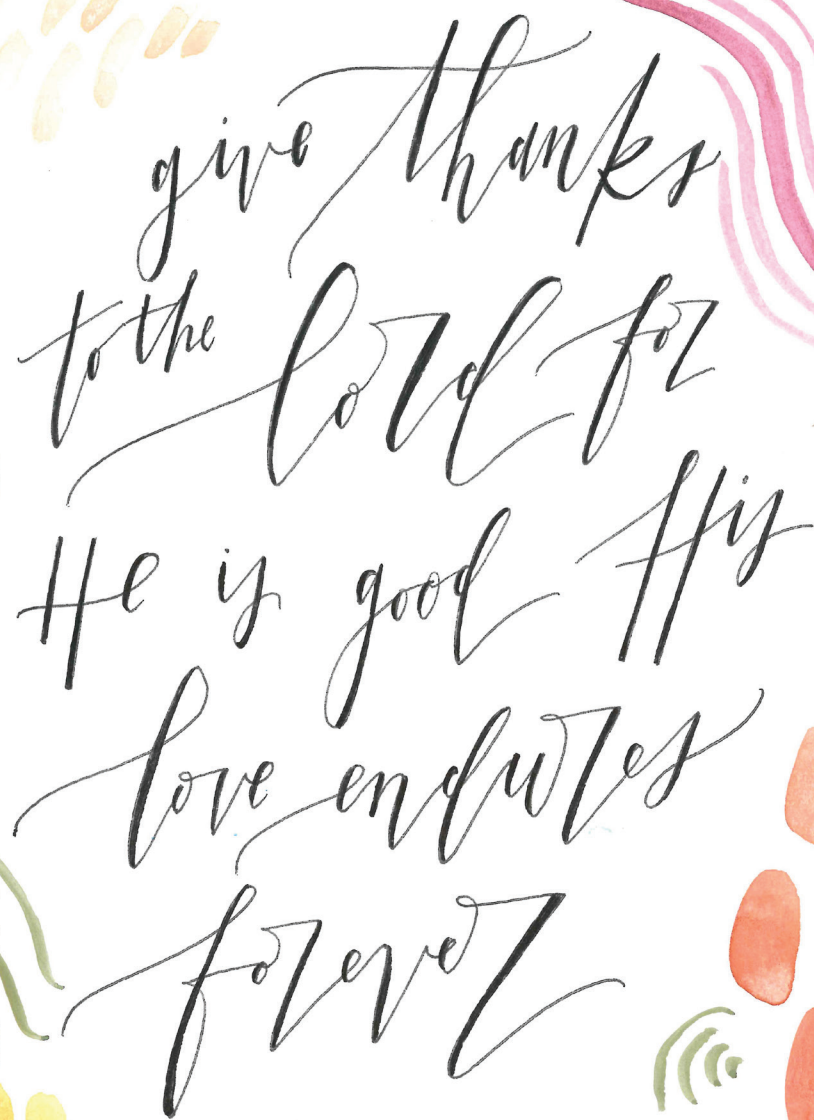 give thanks
to the Lord for
He is good His
love endures
forever